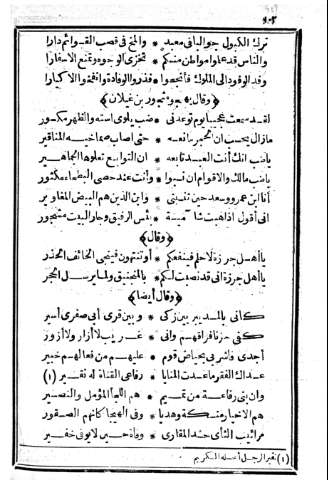 ترك الكيول جواليا في معبد * والمخ في قصب القوائم دارا
والناس قد علموا مواطن منكم * تخزى الوجوه وتمنع الاسفارا
وفد الوفود الى الملوك فأنجحوا * فذروا الوفادة وانفخوا الاكيارا
(وقال يهجو ثور بن غيلان)
لقد سمعت عجيبا يوم توعدنى * ضب يلوى استه والظهر مكسور
مازال يحسب ان الحمير مانعه * حتى أصاب صماخيه المناقير
ياضب انك أنت العبد تابعه * ان التوابع تعلوها الجماهير
ياضب مالك والاقوام ان نسبوا * وأنت عند حصى البطحاء مكثور
أنا ابن عمرو وسعد حين تنسبنى * وابن الذين هم البيض المغاوير
انى أقول اذا هبت شآمية * بئس الرفيق وجار البيت منجور
(وقال)
يا أهل جزرة لا حلم فينفعكم * أو تنتهون فينجى الخائف الحذر
يا أهل جزرة انى قد نصبت لكم * بالمنجنيق ولما يرسل الحجر
(وقال أيضا)
كانى بالمديبر بين زكى * وبين قرى أبى صفرى أسير
كفى حزنا فراقهم وانى * غريب لا أزار ولا أزور
أجدى فاشربى بحياض قوم * عليهم من فعالهم حبير
عداك الفقر ماعدت المنايا * رفاعى القناة له نقير (١)
وان بنى رفاعة من تميم * هم اللجأ المؤمل والنصير
هم الاخيار منسكة وهديا * وفى الهيجا كانهم الصقور
مرائيب الثأى حشد المقارى * وفاة حين لا يوفى خفير
(١) نقير الرجل أصله الكريم